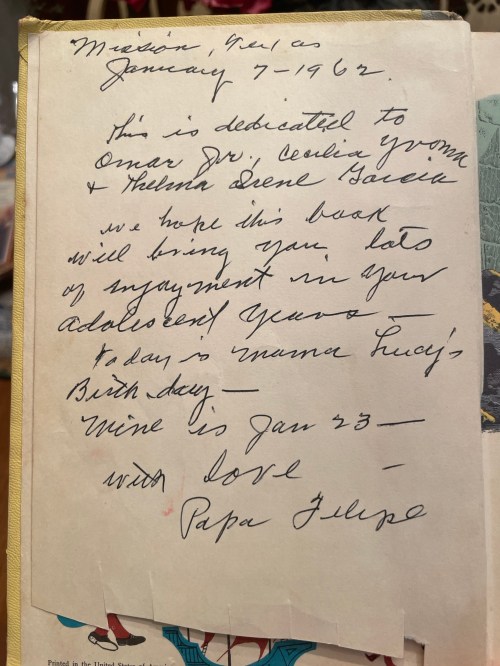 Mission, Texas
January 7-1962.
This is dedicated to
Omar Jr., Cecilia Yvonna
& Thelma Irene Garcia
we hope this book
will bring you lots
of injoyment in your
adolescent years —
today is mama Lucy's
Birth day —
Mine is Jan 23 —
with love —
Papa Felipe
Printed in the United States of